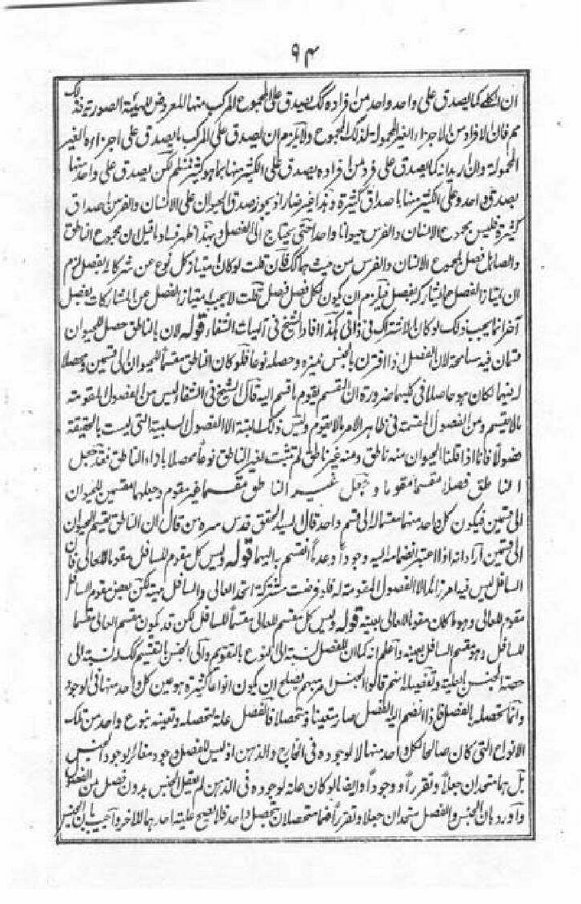 ٩٤
ان الكلى كما يصدق على واحد واحد من افراده كك يصدق على المجموع المركب منها المعروض للهيئة الصورية فذلك
مم فان الافراد من الاجزاء الغير المحمولة لذلك المجموع ولا يلزم ان يصدق على المركب ما يصدق على اجزاءه الغير
المحمولة وان اريد انه كما يصدق على فرد من افراده يصدق على الكثير منها بما هو كثير فمسلم لكن يصدق على واحد منها
بصدق واحد وعلى الكثير منها باصداق كثيرة وهذا غير ضار اذ يجوز صدق الحيوان على الانسان والفرس باصداق
كثيرة فليس مجموع الانسان والفرس حيوانا واحدا حتى يحتاج الى الفصل وبهذا ظهر فساد ما قيل ان مجموع الناطق
والصاهل فصل لمجموع الانسان والفرس من حيث هما كك فان قلت لو كان امتياز كل نوع عن مشاركاته بفصل لزم
ان يمتاز الفصل عما يشاركه بفصل فيلزم ان يكون لكل فصل فصل قلت لا يجب امتياز الفصل عن المشاركات بفصل
آخر انما يجب ذلك لو كان الاشتراك فى ذاتى هكذا افاد الشيخ فى الٰهيات الشفاء قوله لان الناطق حصل للحيوان
قسمان فيه مسامحة لان الفصل اذا اقترن بالجنس ميزه وحصله نوعا فلو كان الناطق مقسما للحيوان الى قسمين ومحصلا
لهما لكان هو حاصلا فى كليهما ضرورة ان المقسم يقوم ما قسم اليه قال الشيخ فى الشفاء ليس من الفصول المقومة
ما لا يقسم ومن الفصول المقسمة فى ظاهر الامر ما لا يقوم وليس ذلك البتة الا الفصول السلبية التى ليست بالحقيقة
فصولا فانا اذا قلنا الحيوان منه ناطق ومنه غير ناطق لم يثبت لغير الناطق نوعا محصلا باداء الناطق فقد جعل
الناطق فصلا مقسما مقوما وجعل غير الناطق مقسما غير مقوم وجعلهما مقسمين للحيوان
الى قسمين فيكون كل واحد منهما مشتملا الى قسم واحد قال السيد المحقق قدس سره من قال ان الناطق يقسم الحيوان
الى قسمين اراد انه اذا اعتبر انضمامه اليه وجودا وعدما انقسم بالیهما قوله وليس كل مقوم للسافل مقوما للعالى فان
السافل ليس فيه امر زائد الا الفصول المقومة له فلو فرضت مشتركة اتحد العالى والسافل هف لكن بعض مقوم السافل
مقوم للعالى وهو ما كان مقوما للعالى بعينه قوله وليس كل مقسم للعالى مقسما للسافل لكن قد يكون مقسم العالى مقسما
للسافل وهو مقسم السافل بعينه واعلم انه كما ان للفصل نسبة الى النوع بالتقويم والى الجنس بالتقسيم كك له نسبة الى
حصة الجنس بالعلية وتفصيله انهم قالوا الجنس امر مبهم يصلح ان يكون انواعا كثيرة هو عين كل واحد منها فى الوجود
وانما تحصله بالفصل فاذا انضم اليه الفصل صار متعينا ومتحصلا فالفصل علة لتحصله وتعينه بنوع واحد من تلك
الانواع التى كان صالحا لكل واحد منها لا لوجوده فى الخارج والذهن اذ ليس للفصل وجود مغائر لوجود الجنس
بل هما متحدان جعلا وتقررا ووجودا وايضا لو كان علة لوجوده فى الذهن لم يتعقل الجنس بدون فصل من الفصول
واورد بان الجنس والفصل متحدان جعلا وتقررا فهما متحصلان بتحصل واحد فلا يصح علية احدهما للآخر واجيب بان الجنس